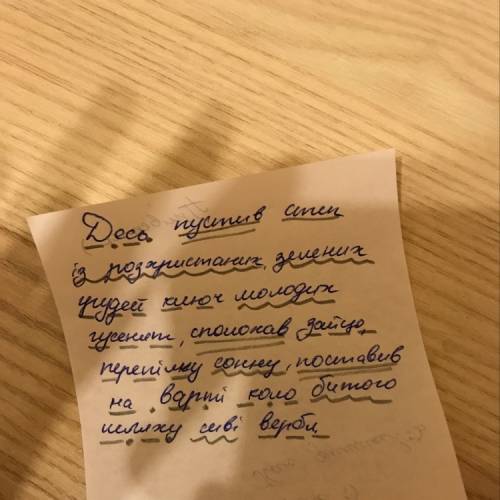 Десь пустив степ
із розхристаних, зелених
грудей ключ молодих
гусенят, сполохав зайця,
перепілку сонну, поставив
на варті коло битого
шляху сиві верби